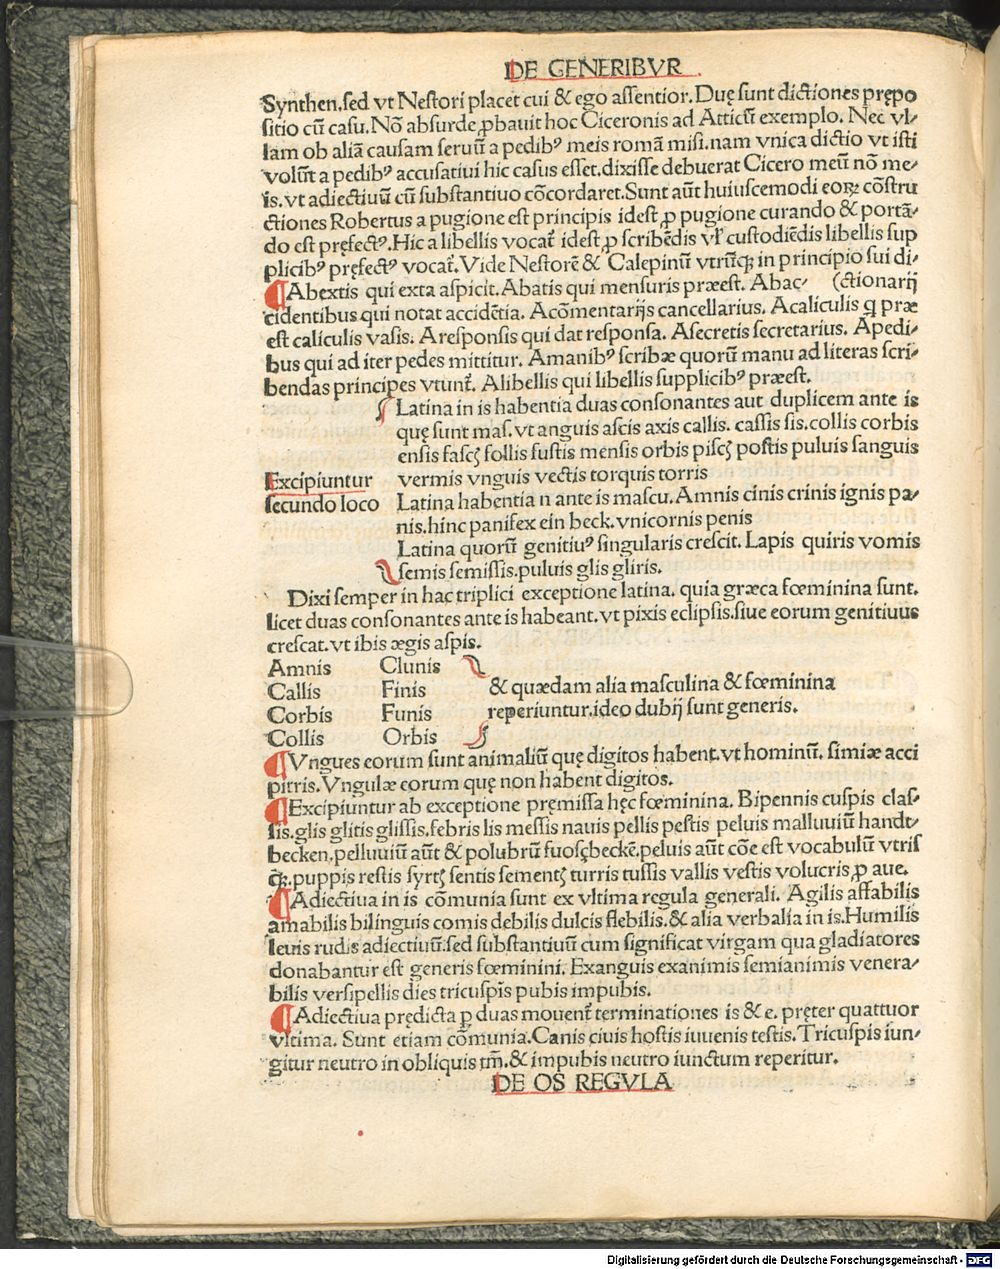 DE GENERIBVR
Synthen.sed vt Nestori placet cui & ego assentior.Duę sunt dictiones prępo
sitio cū casu.Nō absurde ꝓbauit hoc Ciceronis ad Atticū exemplo. Nec vl⸗
lam ob aliā causam seruū a pedibꝰ meis romā misi.nam vnica dictio vt isti
volūt a pedibꝰ accusatiui hic casus esset.dixisse debuerat Cicero meū nō me⸗
is.vt adiectiuū cū substantiuo cōcordaret.Sunt aūt huiuscemodi eoꝝ cōstru
ctiones Robertus a pugione est principis idest ꝓ pugione curando & portā⸗
do est pręfectꝰ.Hic a libellis vocat̄ idest ꝓ scribēdis vl̄ custodiēdis libellis sup
plicibꝰ pręfectꝰ vocat̄.Vide Nestorē & Calepinū vtrūqꝫ in principio sui di⸗
¶Abextis qui exta aspicit.Abatis qui mensuris præest. Abac⸗ (ctionarij
cidentibus qui notat accidētia. Acōmentarijs cancellarius. Acaliculis q præ
est caliculis vasis. Aresponsis qui dat responsa. Asecretis secretarius. Apedi⸗
bus qui ad iter pedes mittitur. Amanibꝰ scribæ quorū manu ad literas scri⸗
bendas principes vtunt̄. Alibellis qui libellis supplicibꝰ præest.
Latina in is habentia duas consonantes aut duplicem ante is
quę sunt mas.vt anguis ascis axis callis. cassis sis.collis corbis
ensis fascꝭ follis fustis mensis orbis piscꝭ postis puluis sanguis
Excipiuntur vermis vnguis vectis torquis torris
secundo loco Latina habentia n ante is mascu.Amnis cinis crinis ignis pa⸗
nis.hinc panifex ein beck.vnicornis penis
Latina quorū genitiuꝰ singularis crescit. Lapis quiris vomis
semis semissis.puluis glis gliris.
Dixi semper in hac triplici exceptione latina. quia græca fœminina sunt.
licet duas consonantes ante is habeant.vt pixis eclipsis.siue eorum genitiuus
crescat.vt ibis ægis aspis.
Amnis Clunis
Callis Finis & quædam alia masculina & fœminina
Corbis Funis reperiuntur.ideo dubij sunt generis.
Collis Orbis
¶Vngues eorum sunt animaliū quę digitos habent.vt hominū. simiæ acci
pitris. Vngulæ eorum quę non habent digitos.
¶Excipiuntur ab exceptione pręmissa hęc fœminina. Bipennis cuspis clas⸗
sis.glis glitis glissis.febris lis messis nauis pellis pestis peluis malluuiū handt⸗
becken.pelluuiū aūt & polubrū fuosꝭbeckē.peluis aūt cōe est vocabulū vtris
qꝫ.puppis restis syrtꝭ sentis sementꝭ turris tussis vallis vestis volucris ꝓ aue.
¶Adiectiua in is cōmunia sunt ex vltima regula generali. Agilis affabilis
amabilis bilinguis comis debilis dulcis flebilis.& alia verbalia in is.Humilis
leuis rudis adiectiuū:sed substantiuū cum significat virgam qua gladiatores
donabantur est generis fœminini. Exanguis exanimis semianimis venera⸗
bilis versipellis dies tricuspis pubis impubis.
¶Adiectiua prędicta ꝑ duas mouent̄ terminationes is & e. pręter quattuor
vltima. Sunt etiam cōmunia.Canis ciuis hostis iuuenis testis. Tricuspis iun⸗
gitur neutro in obliquis tm̄.& impubis neutro iunctum reperitur.
DE OS REGVLA
Digitalisierung gefördert durch die Deutsche Forschungsgemeinschaft - DFG